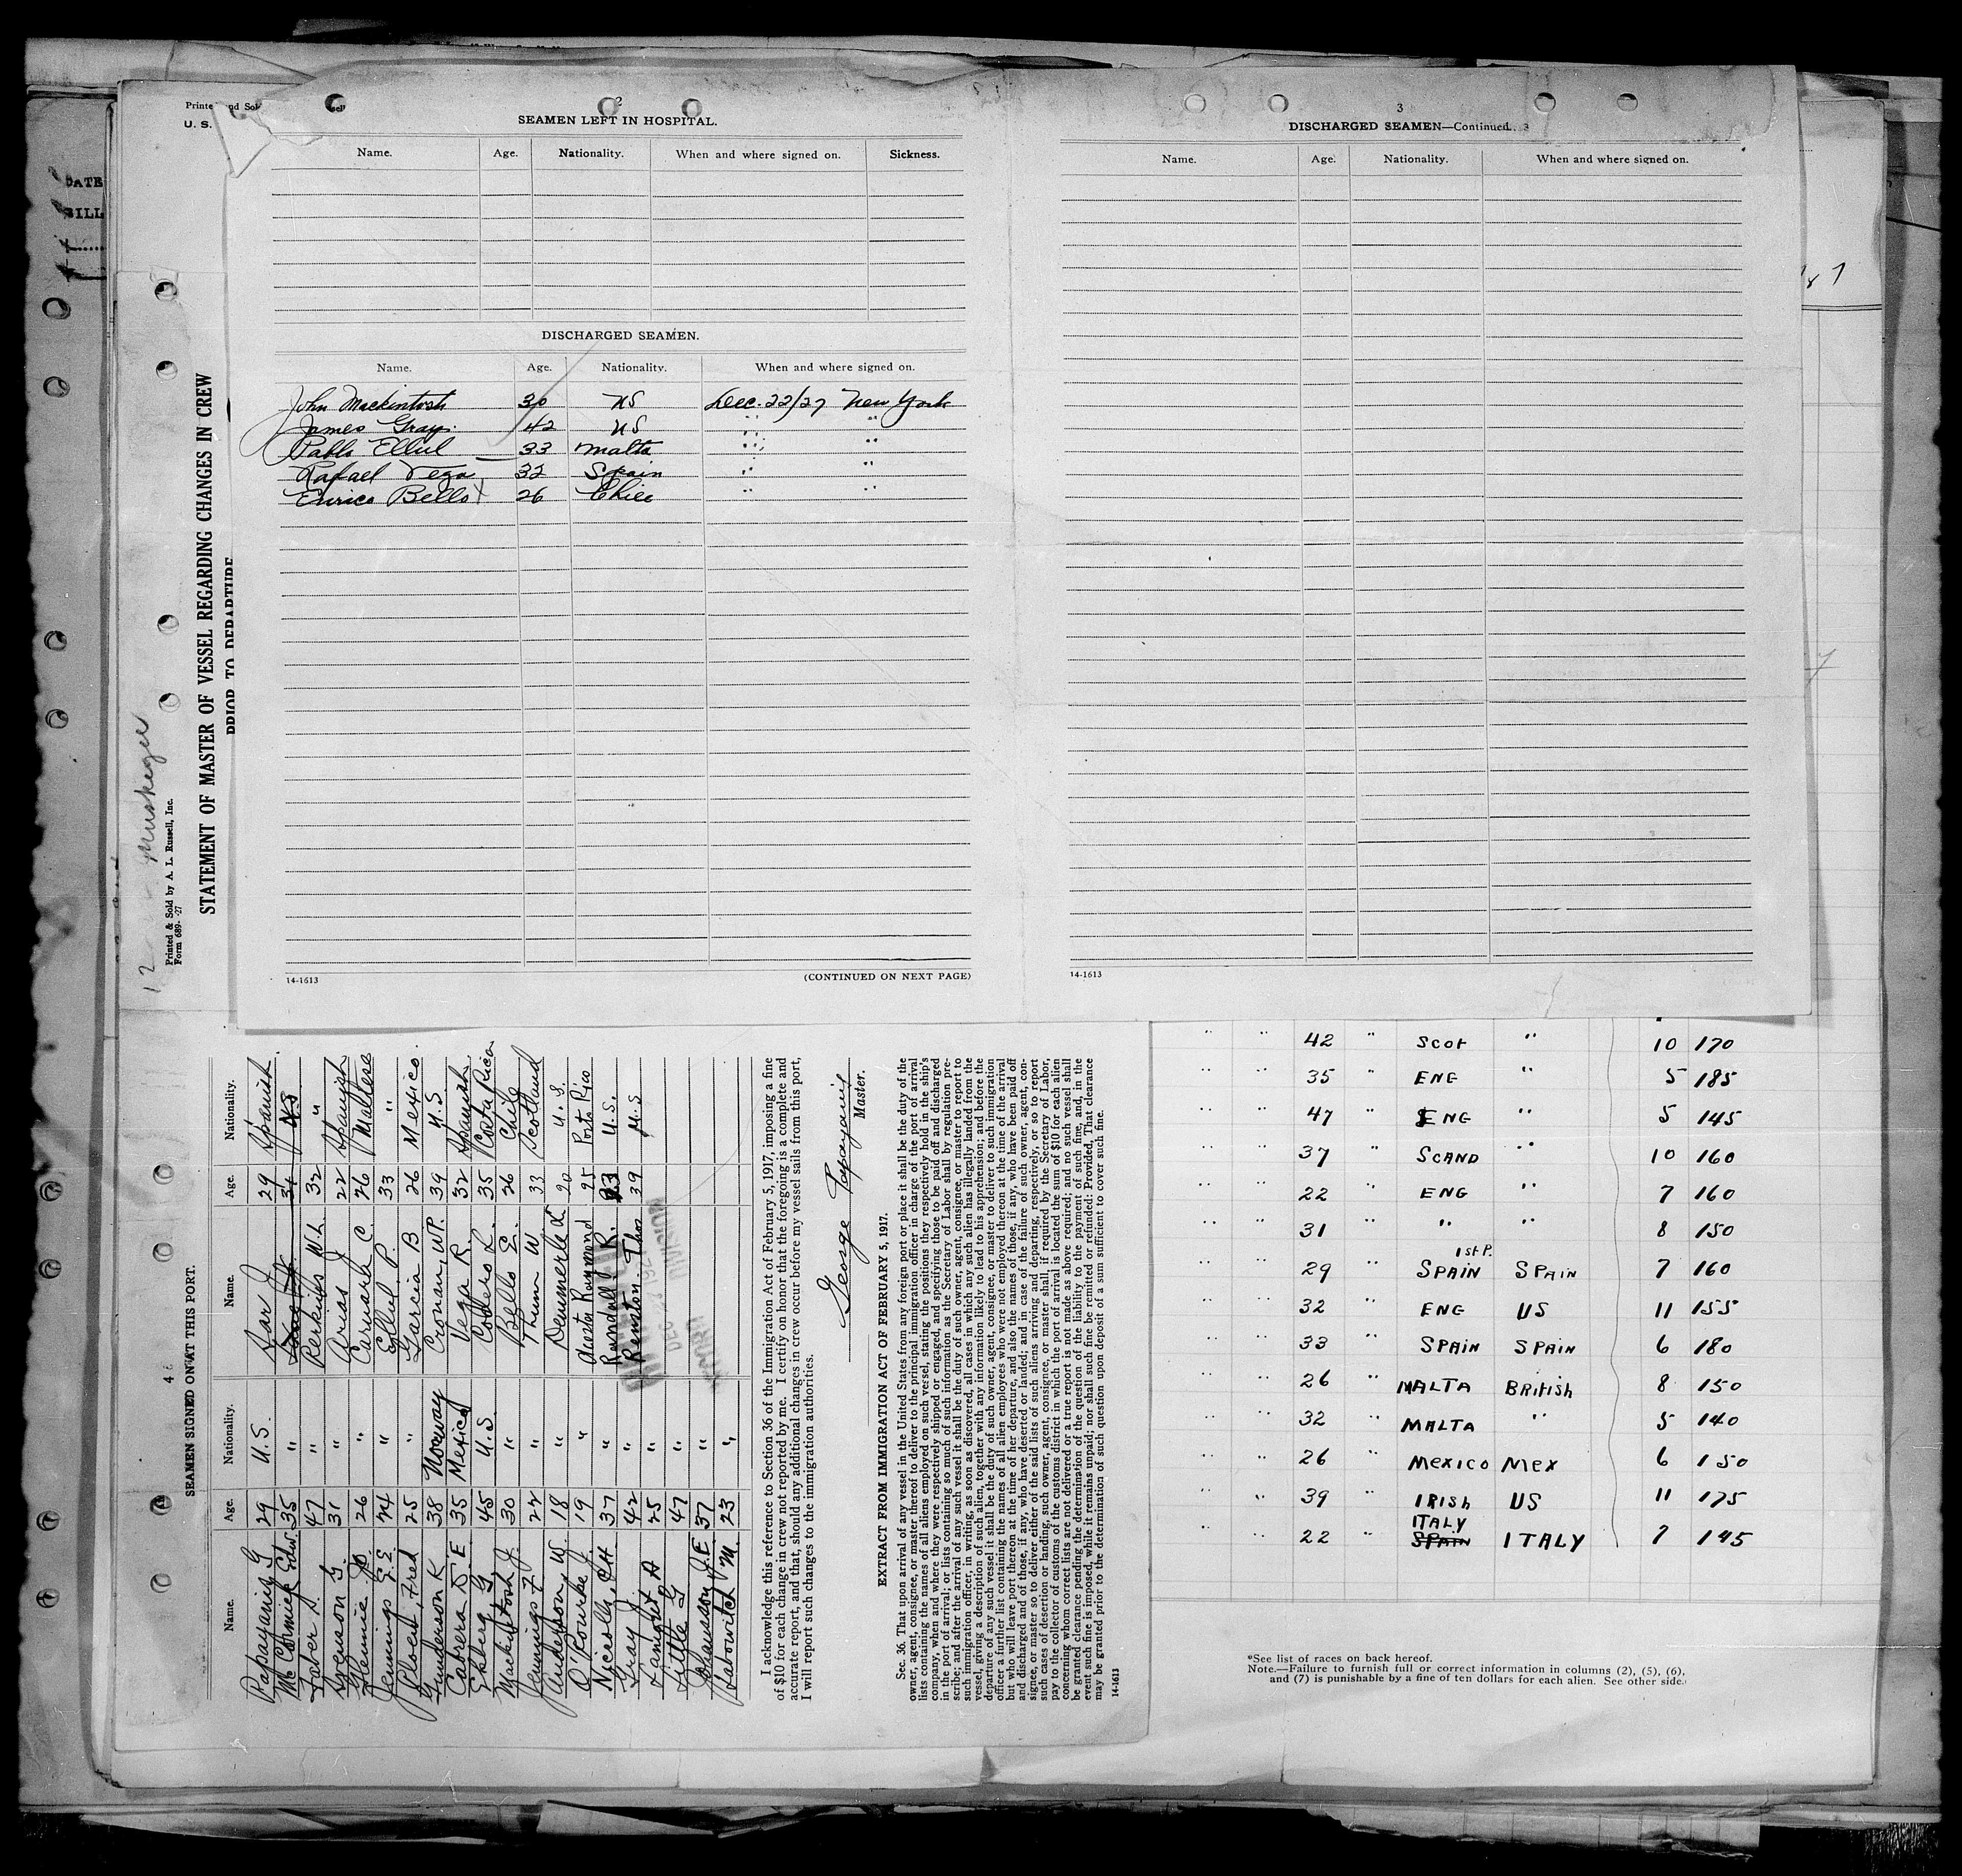 Printed and Sold
U. S.
2
SEAMEN LEFT IN HOSPITAL.
Name. Age. Nationality. When and where signed on. Sickness.
DISCHARGED SEAMEN.
Name. Age. Nationality. When and where signed on.
John Mackintosh 30 US Dec. 22/27 New York
James Gray. 42 US " "
Pablo Ellul 33 Malta " "
Rafael Vega 32 Spain " "
Enrico Bello 26 Chile " "
14-1613
(CONTINUED ON NEXT PAGE)
3
DISCHARGED SEAMEN—Continued.
Name. Age. Nationality. When and where signed on.
14-1613
DATE
BILL
12 Muskegee
Printed & Sold by A. L. Russell, Inc.
Form 689- -27
STATEMENT OF MASTER OF VESSEL REGARDING CHANGES IN CREW
PRIOR TO DEPARTURE
4
SEAMEN SIGNED ON AT THIS PORT.
Name. Age. Nationality. Name. Age. Nationality.
Papayanis G 29 U.S. 29 Spanish.
McCormick Edw. 35 " 34 US
Faber 47 " Perkins W.L. 32 "
Svenson G. 31 " Arias J 22 Spanish
Glennie 26 " Caruana C. 26 Maltese
Jennings G.E. 24 " Ellul P. 33 "
Plovent, Fred 25 " Garcia B 26 Mexico.
Gunderson K 38 Norway Cronan, WP. 39 U.S.
Cabrera D E 35 Mexico Vega R. 32 Spanish
Ekberg G 45 U.S. Cordero L. 35 Costa Rica
Mackintosh J. 30 " Bello E. 26 Chile
Jennings F 22 " Thum W. 33 Scotland
Anderson, W. 18 " Demmerle L 20 U.S.
O'Rourke J. 19 " Acosta Raymond 25 Porto Rico
Nicrolls, CH. 37 " Rundall R. 23 U.S.
Gray J 42 " Renston Thos 39 U.S
Zamont A 25 "
Little G 47 "
Johansson J.E 37 "
Labowitch M. 23 "
I acknowledge this reference to Section 36 of the Immigration Act of February 5, 1917, imposing a fine
of $10 for each change in crew not reported by me. I certify on honor that the foregoing is a complete and
accurate report, and that, should any additional changes in crew occur before my vessel sails from this port,
I will report such changes to the immigration authorities.
George Papayanis
Master.
EXTRACT FROM IMMIGRATION ACT OF FEBRUARY 5, 1917.
Sec. 36. That upon arrival of any vessel in the United States from any foreign port or place it shall be the duty of the
owner, agent, consignee, or master thereof to deliver to the principal immigration officer in charge of the port of arrival
lists containing the names of all aliens employed on such vessel, stating the positions they respectively hold in the ship's
company, when and where they were respectively shipped or engaged, and specifying those to be paid off and discharged
in the port of arrival; or lists containing so much of such information as the Secretary of Labor shall by regulation pre-
scribe; and after the arrival of any such vessel it shall be the duty of such owner, agent, consignee, or master to report to
such immigration officer, in writing, as soon as discovered, all cases in which any such alien has illegally landed from the
vessel, giving a description of such alien, together with any information likely to lead to his apprehension; and before the
departure of any such vessel it shall be the duty of such owner, agent, consignee, or master to deliver to such immigration
officer a further list containing the names of all alien employees who were not employed thereon at the time of the arrival
but who will leave port thereon at the time of her departure, and also the names of those, if any, who have been paid off
and discharged and of those, if any, who have deserted or landed; and in case of the failure of such owner, agent, con-
signee, or master so to deliver either of the said lists of such aliens arriving and departing, respectively, or so to report
such cases of desertion or landing, such owner, agent, consignee, or master shall, if required by the Secretary of Labor,
pay to the collector of customs of the customs district in which the port of arrival is located the sum of $10 for each alien
concerning whom correct lists are not delivered or a true report is not made as above required; and no such vessel shall
be granted clearance pending the determination of the question of the liability to the payment of such fine, and, in the
event such fine is imposed, while it remains unpaid; nor shall such fine be remitted or refunded: Provided, That clearance
may be granted prior to the determination of such question upon deposit of a sum sufficient to cover such fine.
14-1613
" " 42 " Scot " 10 170
" " 35 " ENG " 5 185
" " 47 " ENG " 5 145
" " 37 " SCAND " 10 160
" " 22 " ENG " 7 160
" " 31 " " " 8 150
1st P.
" " 29 " SPAIN SPAIN 7 160
" " 32 " ENG US 11 155
" " 33 " SPAIN SPAIN 6 180
" " 26 " MALTA BRitish 8 150
" " 32 " MALTA " 5 140
" " 26 " MEXICO MEX 6 150
" " 39 " IRISH US 11 175
ITALY
" " 22 " SPAIN ITALY 7 145
*See list of races on back hereof.
Note.—Failure to furnish full or correct information in columns (2), (5), (6),
and (7) is punishable by a fine of ten dollars for each alien. See other side.